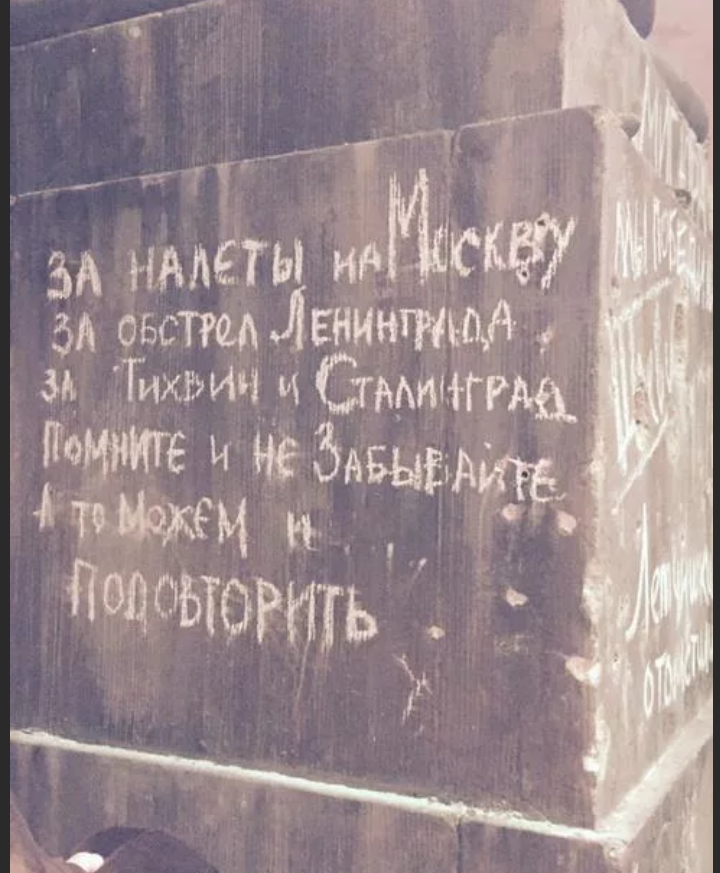 ЗА НАЛЕТЫ НА МОСКВУ
ЗА ОБСТРЕЛ ЛЕНИНГРАДА
ЗА ТИХВИН И СТАЛИНГРАД
ПОМНИТЕ И НЕ ЗАБЫВАЙТЕ
А ТО МОЖЕМ И
ПОДОВТОРИТЬ
МЫ